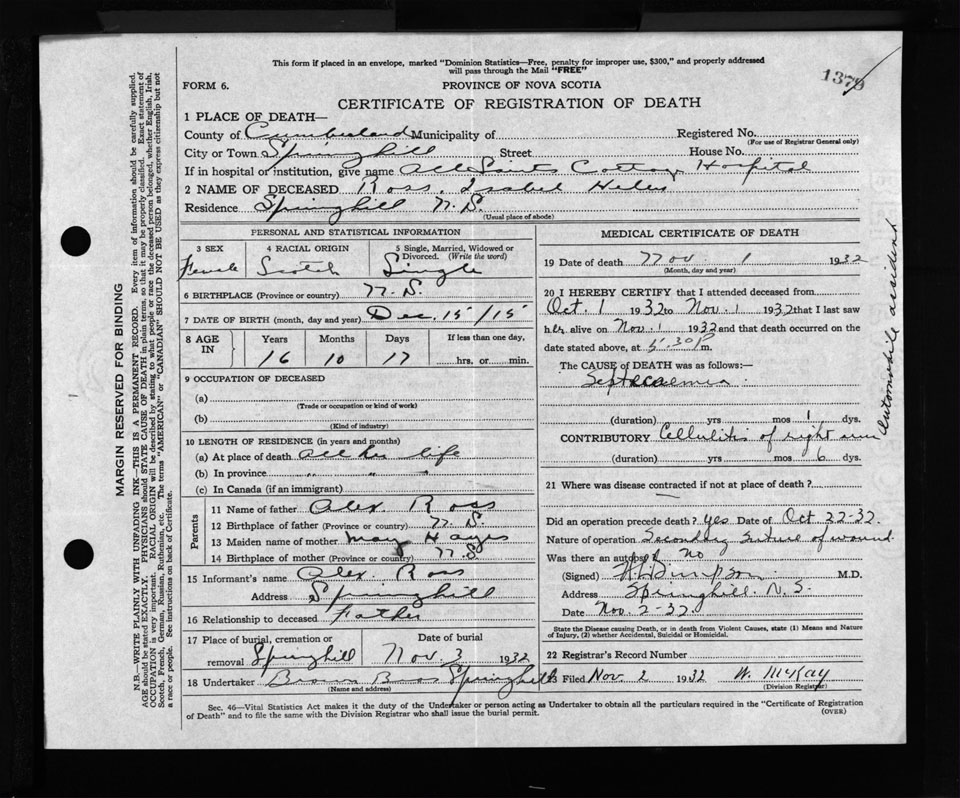 This form if placed in an envelope, marked "Dominion Statistics—Free, penalty for improper use, $300," and properly addressed
will pass through the Mail "FREE"
1379
FORM 6.
PROVINCE OF NOVA SCOTIA
CERTIFICATE OF REGISTRATION OF DEATH
1 PLACE OF DEATH—
County of Cumberland Municipality of Registered No.
(For use of Registrar General only)
City or Town Springhill Street House No.
If in hospital or institution, give name All Saints Cottage Hospital
2 NAME OF DECEASED Ross, Isabel Helen
Residence Springhill N.S.
(Usual place of abode)
PERSONAL AND STATISTICAL INFORMATION
3 SEX 4 RACIAL ORIGIN 5 Single, Married, Widowed or Divorced. (Write the word)
Female Scotch Single
6 BIRTHPLACE (Province or country) N.S.
7 DATE OF BIRTH (month, day and year) Dec. 15/15
8 AGE IN Years Months Days If less than one day,
16 10 17 hrs. or min.
9 OCCUPATION OF DECEASED
(a)
(Trade or occupation or kind of work)
(b)
(Kind of industry)
10 LENGTH OF RESIDENCE (in years and months)
(a) At place of death All her life
(b) In province " " "
(c) In Canada (if an immigrant)
Parents
11 Name of father Alex Ross
12 Birthplace of father (Province or country) N.S.
13 Maiden name of mother May Hayes
14 Birthplace of mother (Province or country) N.S.
15 Informant's name Alex. Ross
Address Springhill
16 Relationship to deceased Father
17 Place of burial, cremation or removal Springhill
Date of burial Nov 3 1932
18 Undertaker Brown Bros Springhill
(Name and address)
MEDICAL CERTIFICATE OF DEATH
19 Date of death Nov. 1 1932
(Month, day and year)
20 I HEREBY CERTIFY that I attended deceased from
Oct. 1 1932 to Nov. 1 1932 that I last saw
her alive on Nov. 1 1932 and that death occurred on the
date stated above, at 5.30 P m.
The CAUSE of DEATH was as follows:—
Septicaemia
(duration) yrs mos 1 dys.
CONTRIBUTORY Cellulitis of right arm
Automobile accident
(duration) yrs mos 6 dys.
21 Where was disease contracted if not at place of death?
Did an operation precede death? Yes Date of Oct 22-32.
Nature of operation Secondary suture of wound
Was there an autopsy? No
(Signed) M.D.
Address Springhill. N.S.
Date Nov. 2-32.
State the Disease causing Death, or in death from Violent Causes, state (1) Means and Nature
of Injury, (2) whether Accidental, Suicidal or Homicidal.
22 Registrar's Record Number
23 Filed Nov. 2 1932 W. McKay
(Division Registrar)
Sec. 46—Vital Statistics Act makes it the duty of the Undertaker or person acting as Undertaker to obtain all the particulars required in the "Certificate of Registration
of Death" and to file the same with the Division Registrar who shall issue the burial permit.
(OVER)
MARGIN RESERVED FOR BINDING
N.B.—WRITE PLAINLY WITH UNFADING INK—THIS IS A PERMANENT RECORD. Every item of information should be carefully supplied.
AGE should be stated EXACTLY. PHYSICIANS should STATE CAUSE OF DEATH in plain terms, so that it may be properly classified. Exact statement of
OCCUPATION is very important. RACIAL ORIGIN will be described by stating to what people or race the deceased person belonged, whether English, Irish,
Scotch, French, German, Russian, Ruthenian, etc. The terms "AMERICAN" or "CANADIAN" SHOULD NOT BE USED as they express citizenship but not
a race or people. See instructions on back of Certificate.